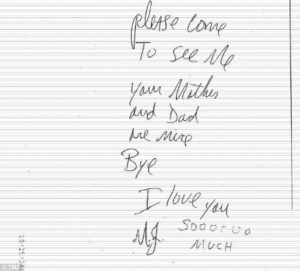 please come
To see Me
your Mother
and Dad
are nice
Bye
I love you
M.J. SoooooO
MUCH